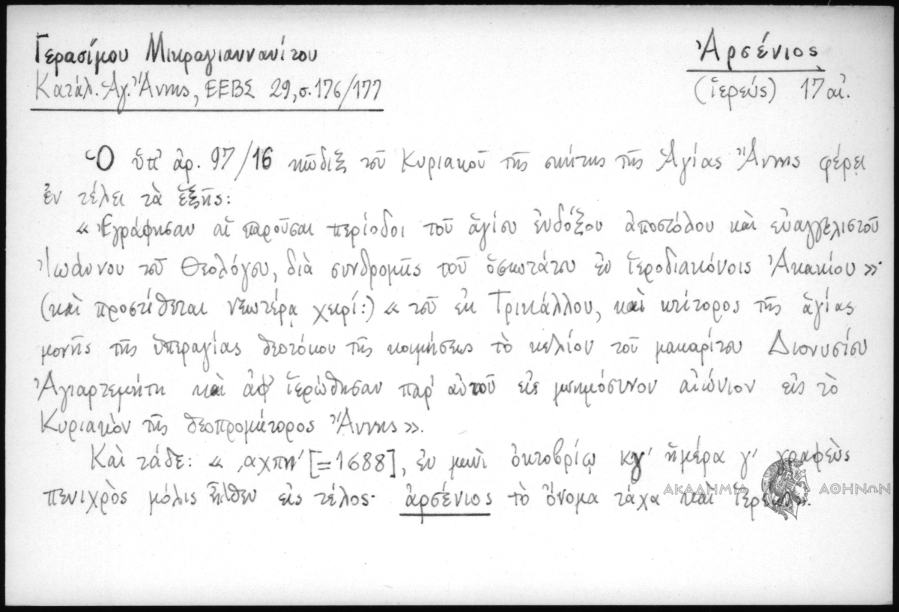 Γερασίμου Μικραγιαννανίτου
Ἀρσένιος
Κατάλ. Ἁγ. Ἄννης, ΕΕΒΣ 29, σ. 176/177
(ἱερεύς) 17 αἰ.
Ὁ ὑπ' ἀρ. 97/16 κῶδιξ τοῦ Κυριακοῦ τῆς σκήτης τῆς Ἁγίας Ἄννης φέρει
ἐν τέλει τὰ ἑξῆς:
« Ἐγράφησαν αἱ παροῦσαι περίοδοι τοῦ ἁγίου ἐνδόξου ἀποστόλου καὶ εὐαγγελιστοῦ
Ἰωάννου τοῦ Θεολόγου, διὰ συνδρομῆς τοῦ ὁσιωτάτου ἐν ἱεροδιακόνοις Ἀκακίου »·
(καὶ προστίθεται νεωτέρᾳ χειρί:) « τοῦ ἐκ Τρικάλλου, καὶ κτίτορος τῆς ἁγίας
μονῆς τῆς ὑπεραγίας θεοτόκου τῆς κοιμήσεως τὸ κελίον τοῦ μακαρίτου Διονυσίου
Ἁγιαρτεμήτη καὶ ἀφ' ἱερώθησαν παρ' αὐτοῦ εἰς μνημόσυνον αἰώνιον εἰς τὸ
Κυριακὸν τῆς θεοπρομήτορος Ἄννης ».
Καὶ τάδε: « ͵αχπη' [=1688], ἐν μηνὶ ὀκτοβρίῳ κγ' ἡμέρα γ' γραφεὺς
πενιχρὸς μόλις ἦλθεν εἰς τέλος· ἀρσένιος τὸ ὄνομα τάχα καὶ ἱερεύς ».
ΑΚΑΔΗΜΙΑ ΑΘΗΝΩΝ